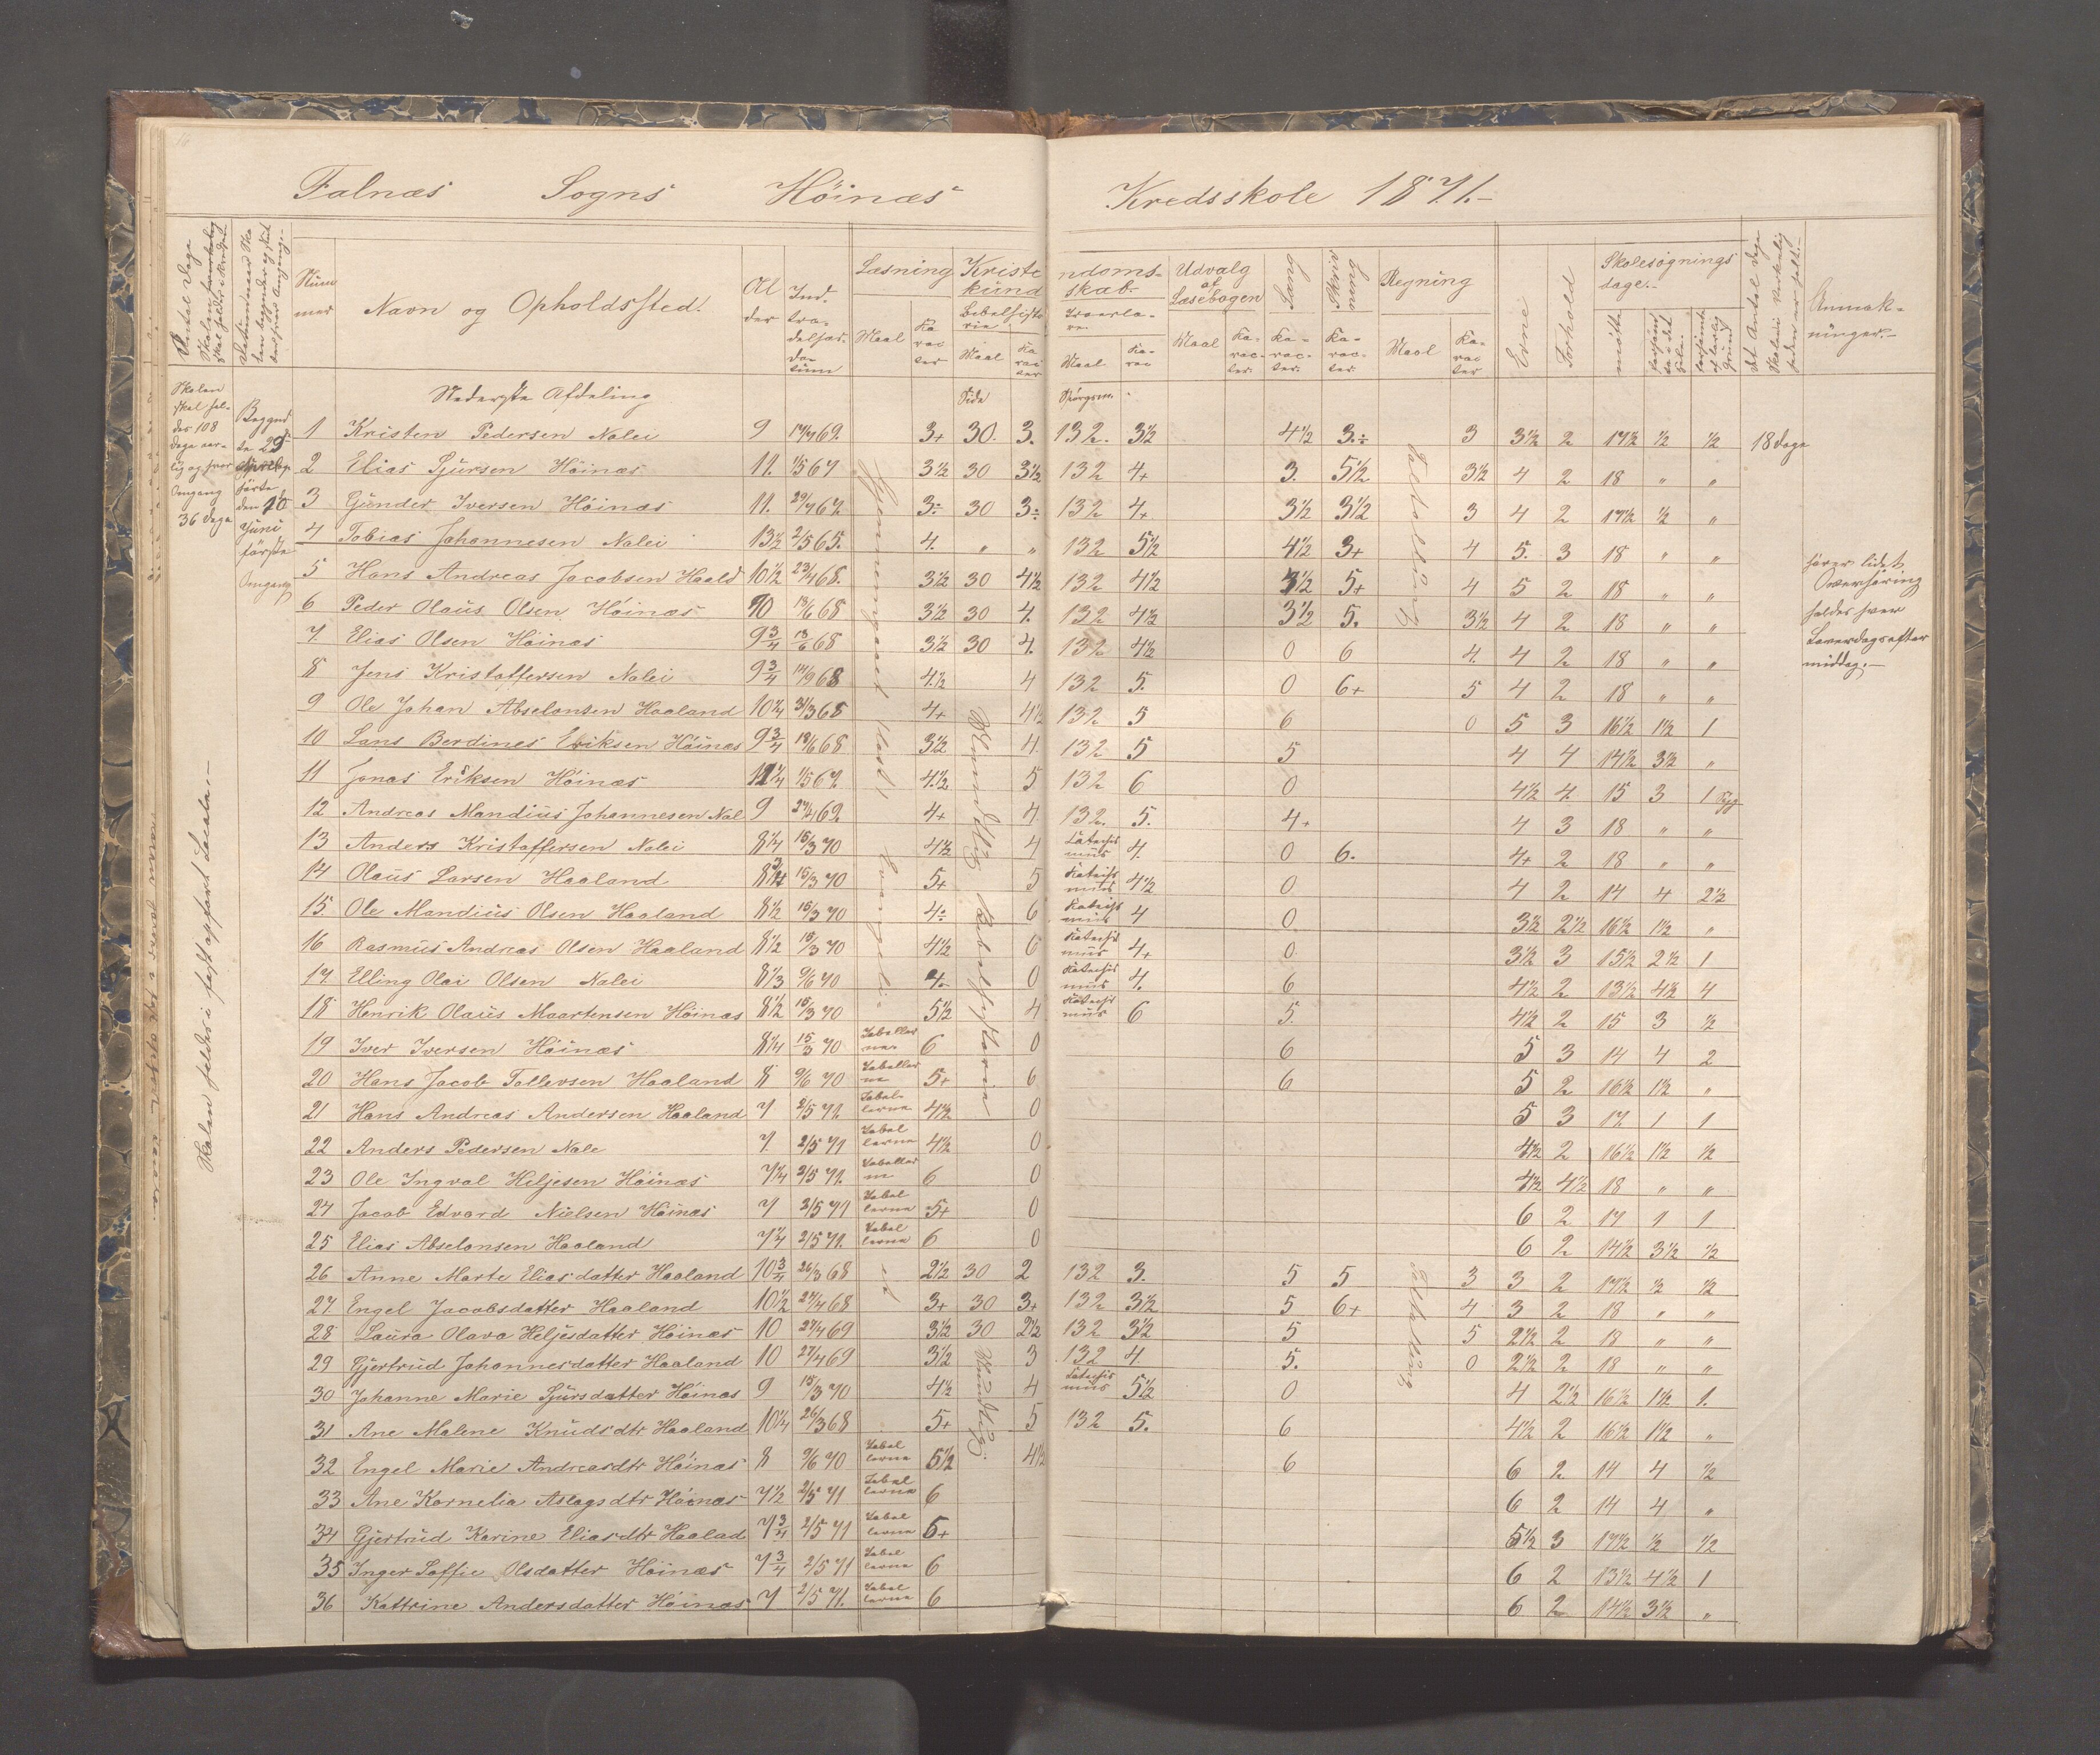 Falnæs Sogns Höinæs Kredsskole 1871.-
Antal Dage Skolen skal holdes i Kredsen
Datum naar Skolen begynder og slut
Num mer
Navn og Opholdssted.
Al der
Ind. træ- delses. da- tum
Læsning
Maal
Ka rac ter
Kriste ndoms- kund skab.
Bibelhisto rie
Maal
Ka rac ter
Troeslæ- re
Maal
Ka- rac
Udvalg af Læsebogen
Maal
Ka- rac- ter.
Sang
Ka- rac- ter.
Skriv ning
Ka- rac- ter.
Regning
Maal
Ka- rac ter
Evne
Forhold
Skolesøgnings dage.-
mødte
forsømte i det Hele
forsømt af lovlig Grund
Det Antal Dage Skolen virkelig
Anmærk- ninger.-
Skolen skal hol- des 108 dage aar- lig og hver Omgang 36 dage
Begynd te 29 første den 10 Juni første Omgang
Skolen holdes i fast opført Locale.-
Nederste Afdeling Side Spørgsm.
1 Kristen Pedersen Nalei 9 17/4 69. 3+ 30. 3. 132. 3½ 4½ 3.÷ 3 3½ 2 17½ ½ ½ 18 dage
2 Elias Sjursen Höinæs 11. 1/5 67 3½ 30 3½ 132 4+ 3. 5½ 3½ 4 2 18 " "
3 Gunder Iversen Höinæs 11. 29/4 67 3÷ 30 3÷ 132 4+ 3½ 3½ 3 4 2 17½ ½ "
4 Tobias Johannesen Nalei 13½ 2/5 65. 4. " " 132 5½ 4½ 3+ 4 5. 3 18 " "
5 Hans Andreas Jacobsen Haald 10½ 23/4 68. 3½ 30 4½ 132 4½ 3½ 5+ 4 5 2 18 " "
6 Peder Olaus Olsen Höinæs 10 18/6 68 3½ 30 4. 132 4½ 3½ 5. 3½ 4 2 18 " "
7. Elias Olsen Höinæs 9¾ 18/6 68 3½ 30 4. 132 4½ 0 6 4. 4 2 18 " "
8 Jens Kristoffersen Nalei 9¾ 14/9 68 4.½ 4 132 5. 0 6+ 5 4 2 18 " "
9 Ole Johan Abselonsen Haaland 10¼ 31/3 68 4+ 4½ 132 5 6 0 5 3 16½ 1½ 1
10 Lans Berdines Eriksen Höinæs 9¾ 18/6 68 3½ 4. 132 5 5 4 4 14½ 3½ "
11 Jonas Eriksen Höinæs 11¼ 1/5 67. 4.½ 5 132 6 0 4½ 4. 15 3 1 Syg
12 Andreas Mandius Johannesen Nal 9 27/4 69 4+ 4. 132. 5. 4+ 4 3 18 " "
13 Anders Kristoffersen Nalei 8¼ 15/3 70 4½ 4 Catechis mus 4. 0 6. 4+ 2 18 " "
14 Olaus Larsen Haaland 8¾ 15/3 70 5+ 5 Katechis mus 4½ 0 4 2 14 4 2½
15. Ole Mandius Olsen Haaland 8½ 15/3 70 4÷ 6 Katechis mus 4 0. 3½ 2½ 16½ 1½ "
16 Rasmus Andreas Olsen Haaland 8½ 15/3 70 4½ 6 Katechis mus 4+ 0. 3½ 3 15½ 2½ 1
17. Elling Olai Olsen Nalei 8⅓ 9/6 70 4÷ 0 Katechis mus 4. 6 4½ 2 13½ 4½ 4
18 Henrik Olaus Maartensen Höinæs 8½ 15/3 70 5½ 4 Katechis mus 6 5. 4½ 2 15 3 ½
19 Iver Iversen Höinæs 8¼ 15/3 70 Tabeller ne 6 0 6 5 3 14 4 2
20 Hans Jacob Tollevsen Haaland 8 9/6 70 Tabeller ne 5+ 6 6 5 2 16½ 1½ "
21 Hans Andreas Andersen Haaland 7 2/5 71. Tabel- lerne 4½ 0 5 3 17 1 1
22 Anders Pedersen Nale 7. 2/5 71 Tabel lerne 4½ 0 4½ 2 16½ 1½ ½
23 Ole Ingval Heljesen Höinæs 7¼ 2/5 71. Tabeller ne 6 0 4½ 4½ 18 " "
24 Jacob Edvard Nielsen Höinæs 7 2/5 71 Tabel lerne 5+ 0 6 2 17 1 1
25 Elias Abselonsen Haaland 7¼ 2/5 71. Tabel lerne 6 0 6 2 14½ 3½ ½
26 Anne Marte Eliasdatter Haaland 10¾ 26/3 68 2½ 30 2 132 3. 5 5 3 3 2 17½ ½ ½
27. Engel Jacobsdatter Haaland 10½ 27/4 68 3+ 30 3+ 132 3½ 5 6+ 4 3 2 18 " "
28 Laura Olava Heljesdatter Höinæs 10 27/4 69 3½ 30 2½ 132 3½ 5 5 2½ 2 18 " "
29 Gjertrud Johannesdatter Haaland 10 27/4 69 3½ 3 132 4. 5. 0 2½ 2 18 " "
30 Johanne Marie Sjursdatter Höinæs 9 15/3 70 4½ 4 Catechis mus 5½ 0 4 2½ 16½ 1½ 1.
31 Ane Malene Knudsdtr Haaland 10¼ 26/3 68 5+ 5 132 5. 6 4½ 2 16½ 1½ "
32 Engel Marie Andreasdtr Höinæs 8 9/6 70 Tabel lerne 5½ 4½ 6 6 2 14 4 ½
33 Ane Kornelia Aslagsdtr Höinæs 7½ 2/5 71 Tabel lerne 6 6 2 14 4 "
34 Gjertrud Karine Eliasdtr Haalad 7¾ 2/5 71 Tabel lerne 5+ 5½ 3 17½ ½ ½
35 Inger Soffie Olsdatter Höinæs 7¾ 2/5 71 Tabel lerne 6 6 2 13½ 4½ 1
36 Kattrine Andersdatter Höinæs 7 2/5 71. Tabel lerne 6 6 2 14½ 3½ "
Mundtlig Bibelhistorie
Mundtlig
hører lidet
Overhøring
holdes hver
Løverdagsefter
middag.-